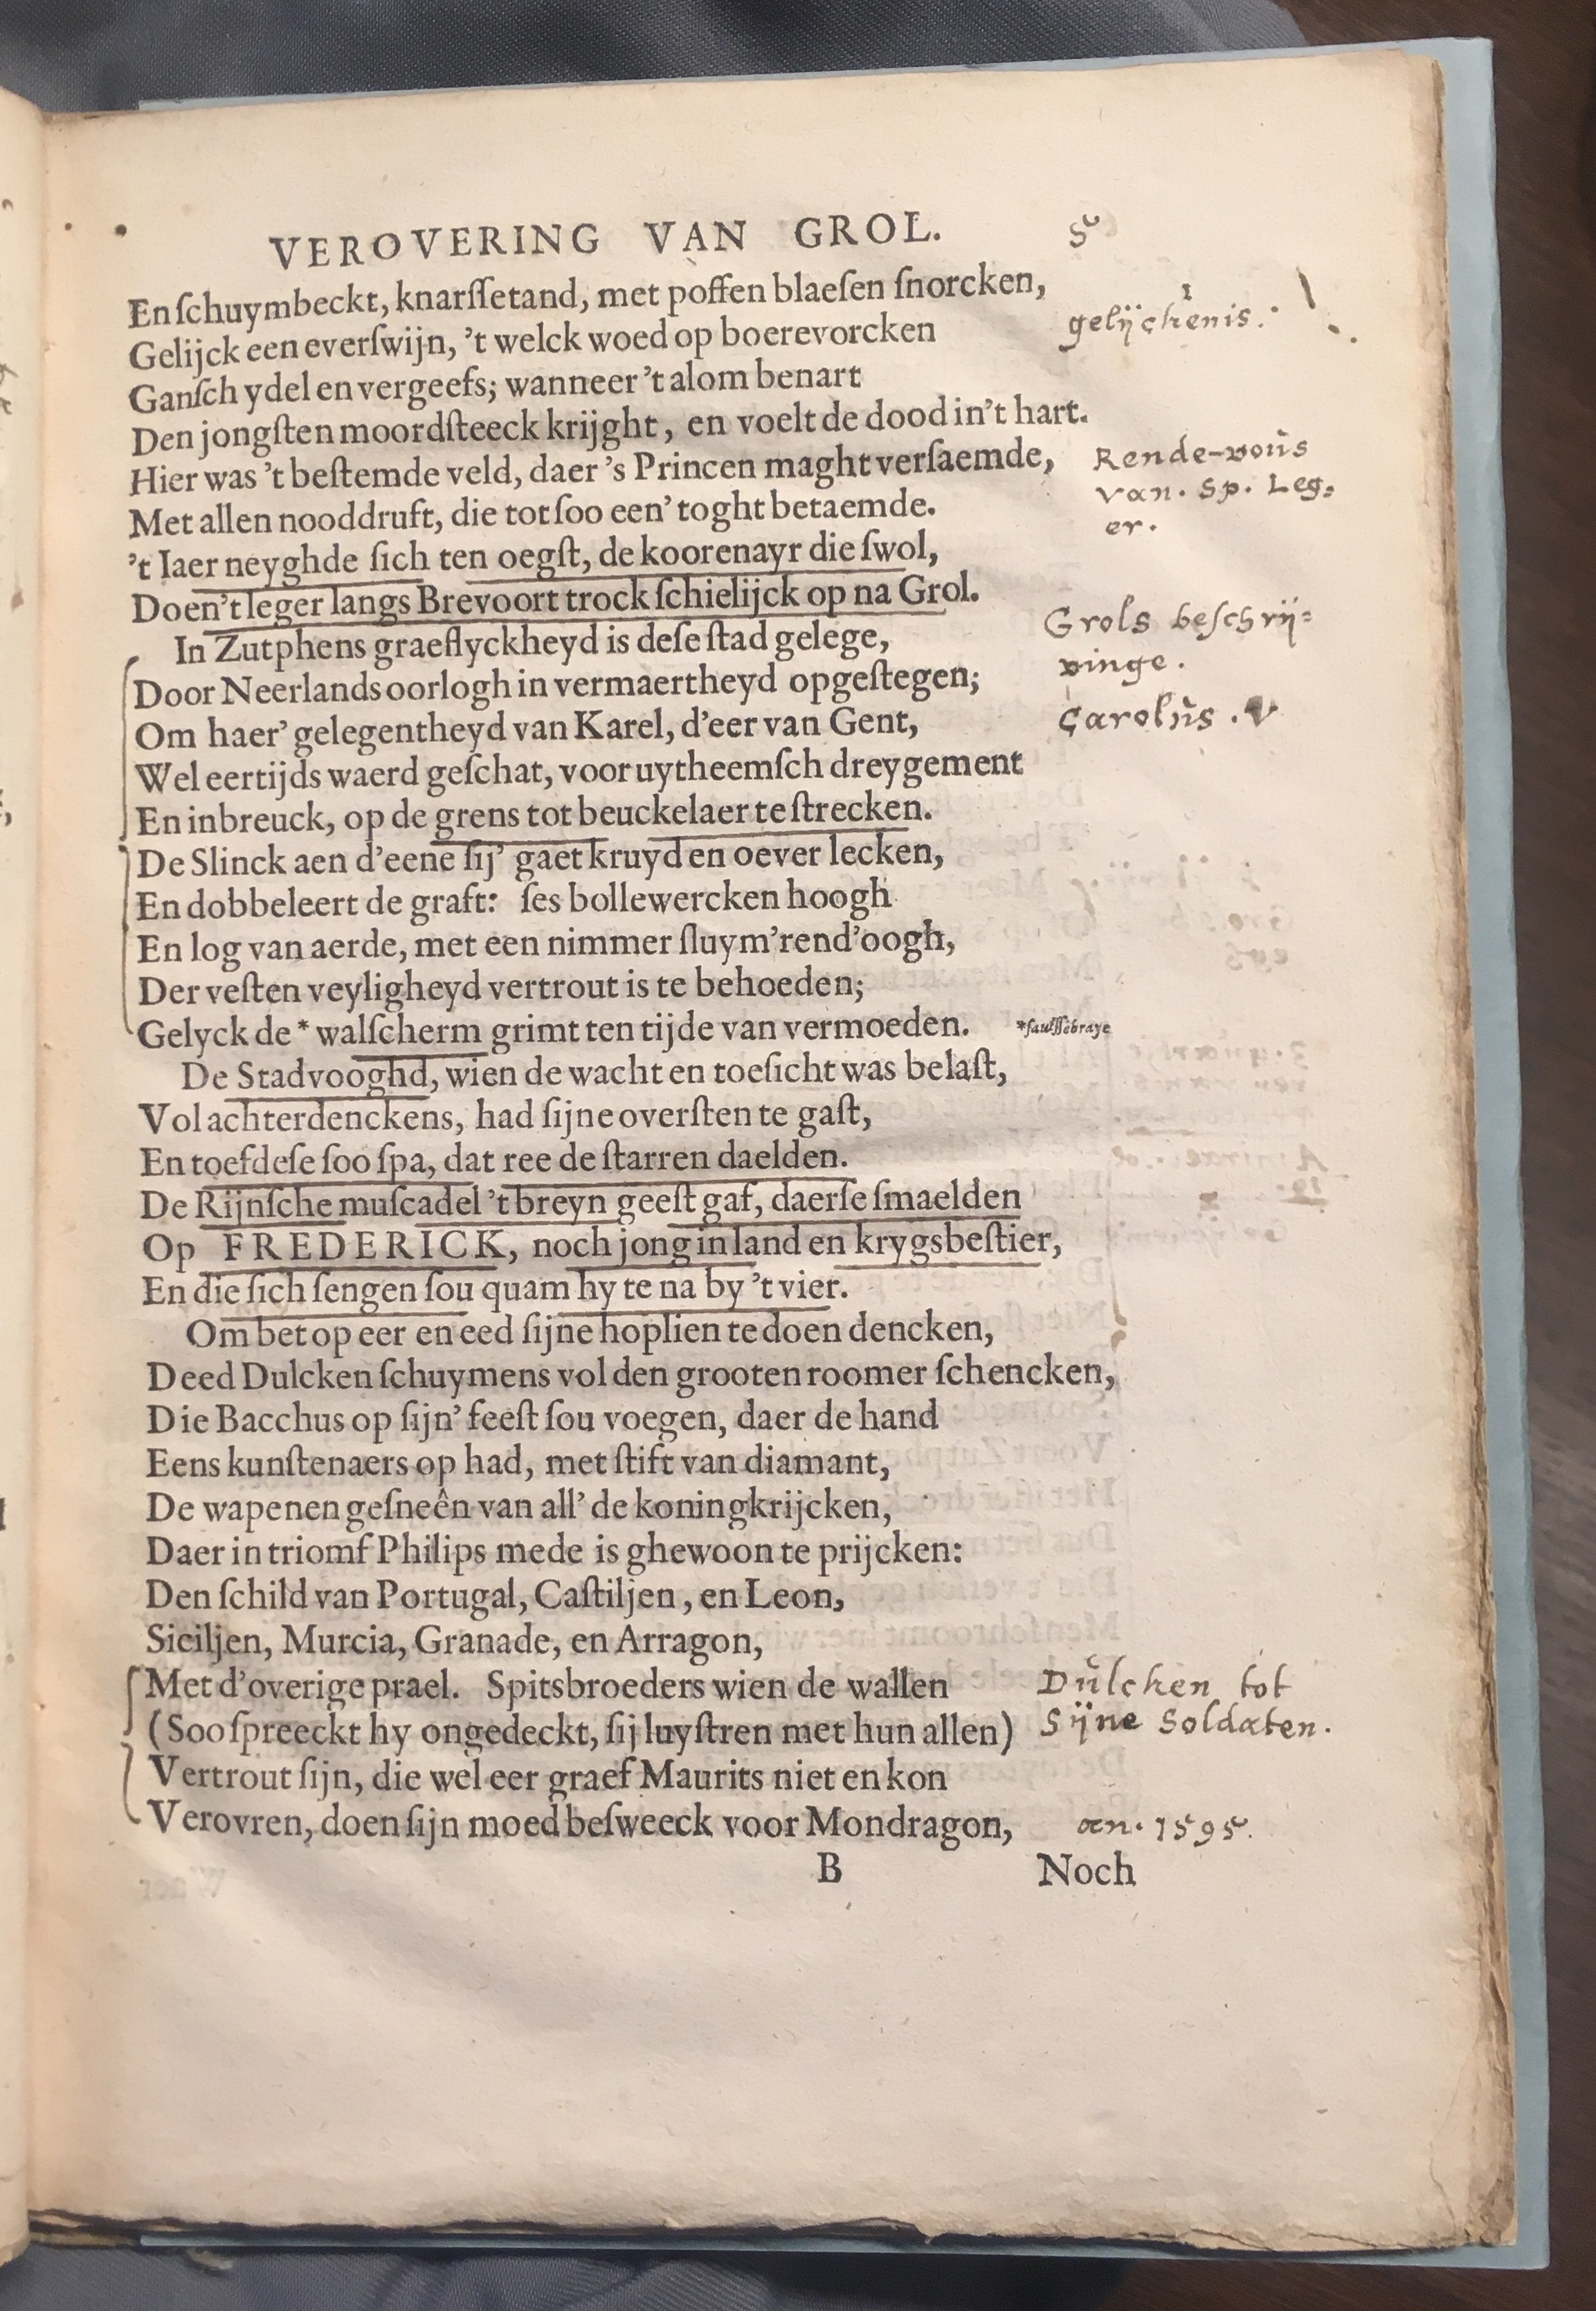 VEROVERING VAN GROL. 5
En ſchuymbeckt, knarſſetand, met poffen blaeſen ſnorcken,
Gelijck een everſwijn, 't welck woed op boerevorcken
gelijchenis.
Ganſch ydel en vergeefs; wanneer 't alom benart
Den jongſten moordſteeck krijght, en voelt de dood in't hart.
Hier was 't beſtemde veld, daer 's Princen maght verſaemde,
Rende-voús
van. Sp. Leg,
er.
Met allen nooddruft, die tot ſoo een' toght betaemde.
't Iaer neyghde ſich ten oegſt, de koorenayr die ſwol,
Doen't leger langs Brevoort trock ſchielijck op na Grol.
In Zutphens graeflyckheyd is deſe ſtad gelege,
Grols beſchrij=
vinge.
Door Neerlands oorlogh in vermaertheyd opgeſtegen;
Om haer' gelegentheyd van Karel, d'eer van Gent,
Carolús. V
Wel eertijds waerd geſchat, voor uytheemſch dreygement
En inbreuck, op de grens tot beuckelaer te ſtrecken.
De Slinck aen d'eene ſij' gaet kruyd en oever lecken,
En dobbeleert de graft: ſes bollewercken hoogh
En log van aerde, met een nimmer ſluym'rend' oogh,
Der veſten veyligheyd vertrout is te behoeden;
Gelyck de * walſcherm grimt ten tijde van vermoeden. *fauſſebraye
De Stadvooghd, wien de wacht en toeſicht was belaſt,
Vol achterdenckens, had ſijne overſten te gaſt,
En toefdeſe ſoo ſpa, dat ree de ſtarren daelden.
De Rijnſche muſcadel 't breyn geeſt gaf, daerſe ſmaelden
Op FREDERICK, noch jong in land en krygsbeſtier,
En die ſich ſengen ſou quam hy te na by 't vier.
Om bet op eer en eed ſijne hoplien te doen dencken,
Deed Dulcken ſchuymens vol den grooten roomer ſchencken,
Die Bacchus op ſijn' feeſt ſou voegen, daer de hand
Eens kunſtenaers op had, met ſtift van diamant,
De wapenen geſneên van all' de koningkrijcken,
Daer in triomf Philips mede is ghewoon te prijcken:
Den ſchild van Portugal, Caſtiljen, en Leon,
Siciljen, Murcia, Granade, en Arragon,
Met d'overige prael. Spitsbroeders wien de wallen
Dúlcken tot
Sijne Soldaten.
(Soo ſpreeckt hy ongedeckt, ſij luyſtren met hun allen)
Vertrout ſijn, die wel eer graef Maurits niet en kon
Verovren, doen ſijn moed beſweeck voor Mondragon,
an. 1595.
B Noch